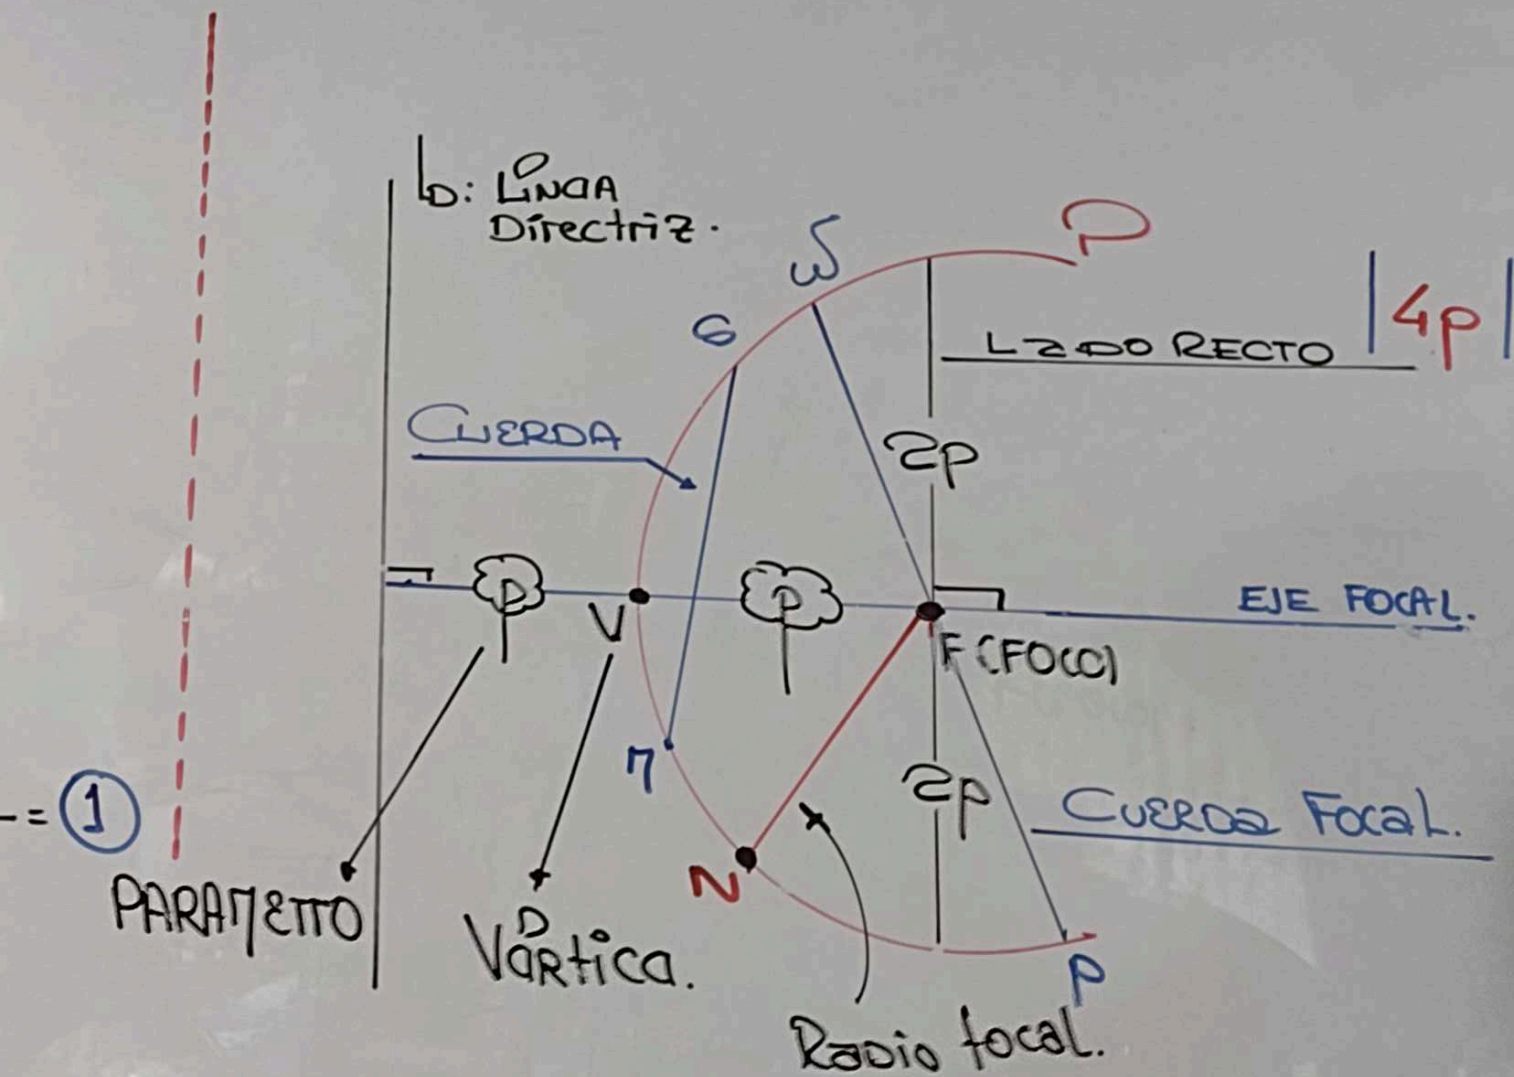 LD: LíNEA
Directriz.
P
W
G
LADO RECTO |4p|
CUERDA
2p
P
P
V
EJE FOCAL.
F (FOCO)
M
2p
CUERDA FOCAL.
-= 1
N
PARAMETRO
Vértice.
P
Radio focal.